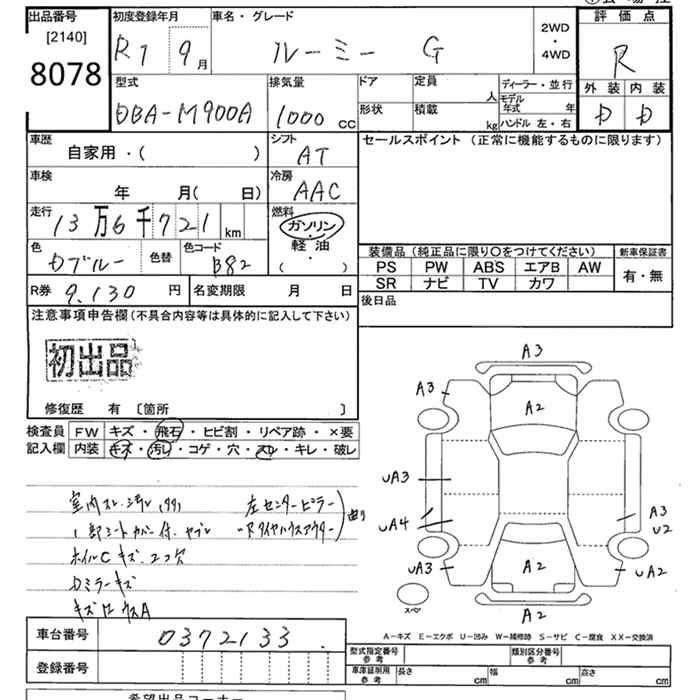 出品番号
[2140]
8078
初度登録年月
R1 9月
車名・グレード
ルーミー G
2WD
・
4WD
評価点
R
外装 内装
D D
型式
DBA-M900A
排気量
1000 cc
ドア
形状
定員
人
積載
kg
ディーラー・並行
モデル年式 年
ハンドル 左・右
車歴
自家用・( )
シフト
AT
セールスポイント (正常に機能するものに限ります)
車検
年 月( 日)
冷房
AAC
走行
13万6千721 km
燃料
ガソリン
・
軽油
( ・ )
色
Dブルー
色替
色コード
B82
装備品 (純正品に限り〇をつけてください)
PS PW ABS エアB AW
SR ナビ TV カワ
新車保証書
有・無
R券 9,130 円
名変期限 月 日
後日品
注意事項申告欄 (不具合内容等は具体的に記入して下さい)
初出品
修復歴 有 〔箇所 〕
検査員記入欄
FW キズ・飛石・ヒビ割・リペア跡・×要
内装 キズ・汚レ・コゲ・穴・スレ・キレ・破レ
左センターピラー
曲り
ホイルCキズ
Dミラーキズ
A3
A3
A2
UA3
UA4
UA3
A3
U2
A2
UA2
A2
スペア
A-キズ E-エクボ U-凹み W-補修跡 S-サビ C-腐食 XX-交換済
車台番号 0372133
登録番号
型式指定番号 参考
類別区分番号 参考
車庫証明用 参考
長さ cm
幅 cm
高さ cm
希望出品コーナー